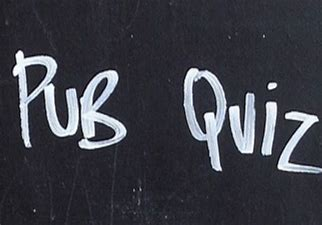 PUB QUIZ